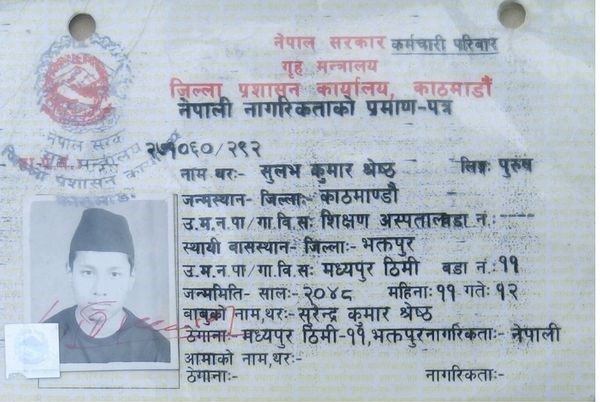 नेपाल सरकार कर्मचारी परिवार
गृह मन्त्रालय
जिल्ला प्रशासन कार्यालय, काठमाडौं
नेपाली नागरिकताको प्रमाण-पत्र
नेपाल सरकार
गृह मन्त्रालय
जिल्ला प्रशासन कार्यालय
काठमाडौं
२७१०६०/२९२
नाम थर:- सुलभ कुमार श्रेष्ठ लिङ्ग: पुरुष
जन्मस्थान- जिल्ला:- काठमाण्डौ
उ.म.न.पा/गा.वि.स: शिक्षण अस्पताल वडा नं.:---
स्थायी बासस्थान- जिल्ला:- भक्तपुर
उ.म.न.पा/गा.वि.स: मध्यपुर ठिमी वडा नं.:११
जन्ममिति- साल:- २०४८ महिना:११ गते: १२
बाबुको नाम,थर:- सुरेन्द्र कुमार श्रेष्ठ
ठेगाना:- मध्यपुर ठिमी-११,भक्तपुर नागरिकता:- नेपाली
आमाको नाम,थर:-
ठेगाना:- नागरिकता:-